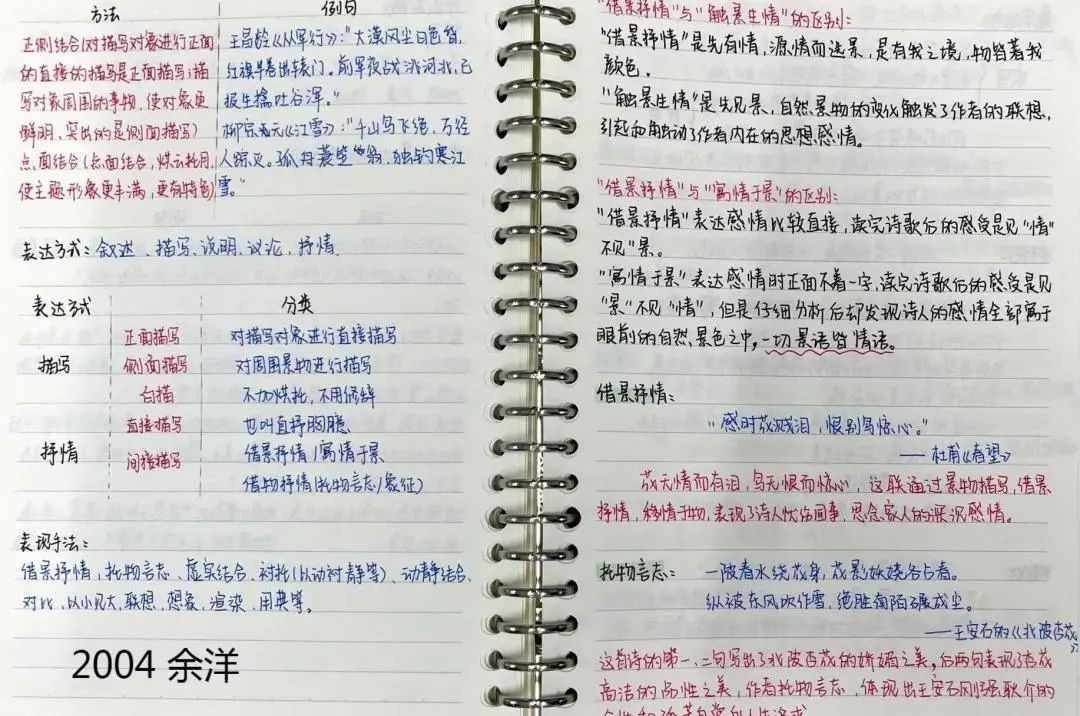 方法 例句
正侧结合(对描写对象进行正面
的直接的描写是正面描写;描
写对象周围的事物,使对象更
鲜明、突出的是侧面描写)
点面结合(点面结合,烘云托月,
使主题形象更丰满,更有特色)
王昌龄《从军行》:"大漠风尘日色昏,
红旗半卷出辕门。前军夜战洮河北,已
报生擒吐谷浑。"
柳宗元《江雪》:"千山鸟飞绝,万径
人踪灭。孤舟蓑笠翁,独钓寒江
雪。"
表达方式:叙述、描写、说明、议论、抒情.
表达方式 分类
描写 正面描写 对描写对象进行直接描写
侧面描写 对周围景物进行描写
白描 不加烘托,不用修辞
抒情 直接描写 也叫直抒胸臆
间接描写 借景抒情/寓情于景
借物抒情(托物言志/象征)
表现手法:
借景抒情,托物言志、虚实结合、衬托(以动衬静等)、动静结合、
对比、以小见大,联想,想象,渲染、用典等。
2004 余洋
"借景抒情"与"触景生情"的区别:
"借景抒情"是先有情,源情而选景,是有我之境,物皆著我
颜色.
"触景生情"是先见景,自然景物的变化触发了作者的联想,
引起和触动了作者内在的思想感情。
"借景抒情"与"寓情于景"的区别:
"借景抒情"表达感情比较直接,读完诗歌后的感受是见"情"
不见"景。
"寓情于景"表达感情时正面不着一字,读完诗歌后的感受是见
"景"不见"情",但是仔细分析后却发现诗人的感情全部寓于
眼前的自然景色之中,一切景语皆情语。
借景抒情:
"感时花溅泪,恨别鸟惊心。"
——杜甫《春望》
花无情而有泪,鸟无恨而惊心,这联通过景物描写,借景
抒情,移情于物,表现了诗人忧伤国事,思念家人的深沉感情。
托物言志: 一陂春水绕花身,花影妖娆各占春。
纵被东风吹作雪,绝胜南陌碾成尘。
——王安石的《北陂杏花》
这首诗的第一、二句写出了北陂杏花的娇媚之美,后两句表现了杏花
高洁的品性之美,作者托物言志,体现出王安石刚强耿介的